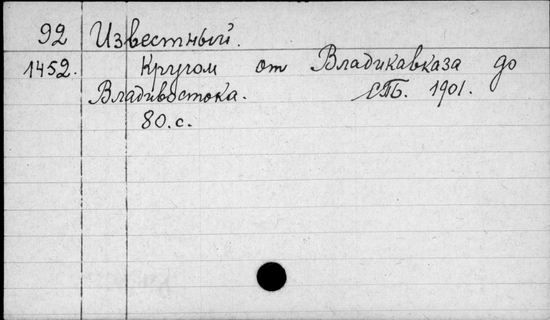 92 Известный.
1452. Кругом от Владикавказа до
Владивостока. СПБ. 1901.
80. с.